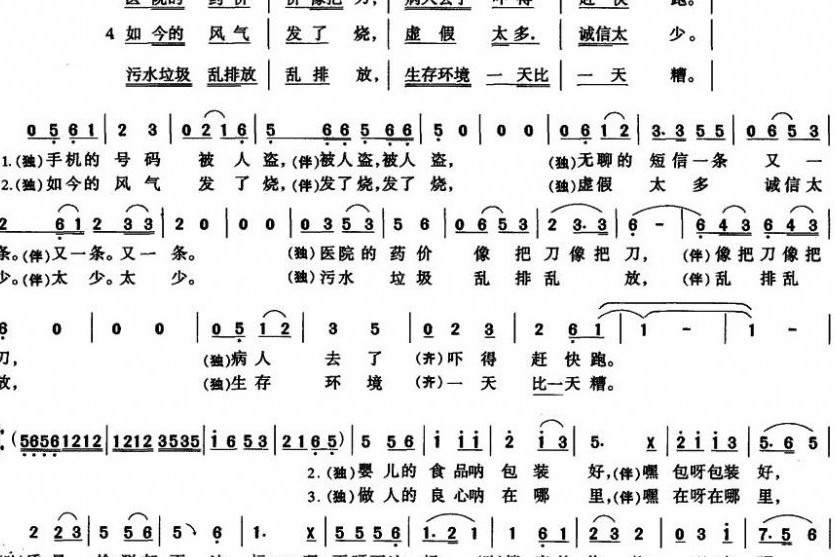 医院的 药价 价像把 刀, 病人去了 吓得 赶快 跑。
4 如今的 风气 发了 烧, 虚假 太多. 诚信太 少。
污水垃圾 乱排放 乱排 放, 生存环境 一天比 一天 糟。
0 5 6 1 | 2 3 | 0 2 1 6 | 5 6 6 5 6 6 | 5 0 | 0 0 | 0 6 1 2 | 3. 3 5 5 | 0 6 5 3
1.(独)手机的 号码 被人盗,(伴)被人盗,被人 盗, (独)无聊的 短信一条 又一
2.(独)如今的 风气 发了烧,(伴)发了烧,发了 烧, (独)虚假 太多 诚信太
2 6 1 2 3 3 | 2 0 | 0 0 | 0 3 5 3 | 5 6 | 0 6 5 3 | 2 3. 3 | 6 - | 6 4 3 6 4 3
条。(伴)又一条。又一条。 (独)医院的 药价 像把刀像把刀, (伴)像把刀像把
少。(伴)太少。太少。 (独)污水 垃圾 乱排乱 放, (伴)乱排乱
6 0 | 0 0 | 0 5 1 2 | 3 5 | 0 2 3 | 2 6 1 | 1 - | 1 -
刀, (独)病人 去了 (齐)吓得 赶快跑。
放, (独)生存 环境 (齐)一天 比一天糟。
(5656 1212 | 1212 3535 | i 6 5 3 | 2 1 6 5) | 5 5 6 | i i i | 2 i 3 | 5. X | 2 i i 3 | 5. 6 5
2.(独)婴儿的 食品呐 包装 好,(伴)嘿 包呀包装 好,
3.(独)做人的 良心呐 在哪 里,(伴)嘿 在呀在哪 里,
2 2 3 | 5 5 6 | 5 6 | 1. X | 5 5 5 6 | 1. 2 1 | 1 6 1 | 2 3 2 | 0 3 i | 7. 5 6